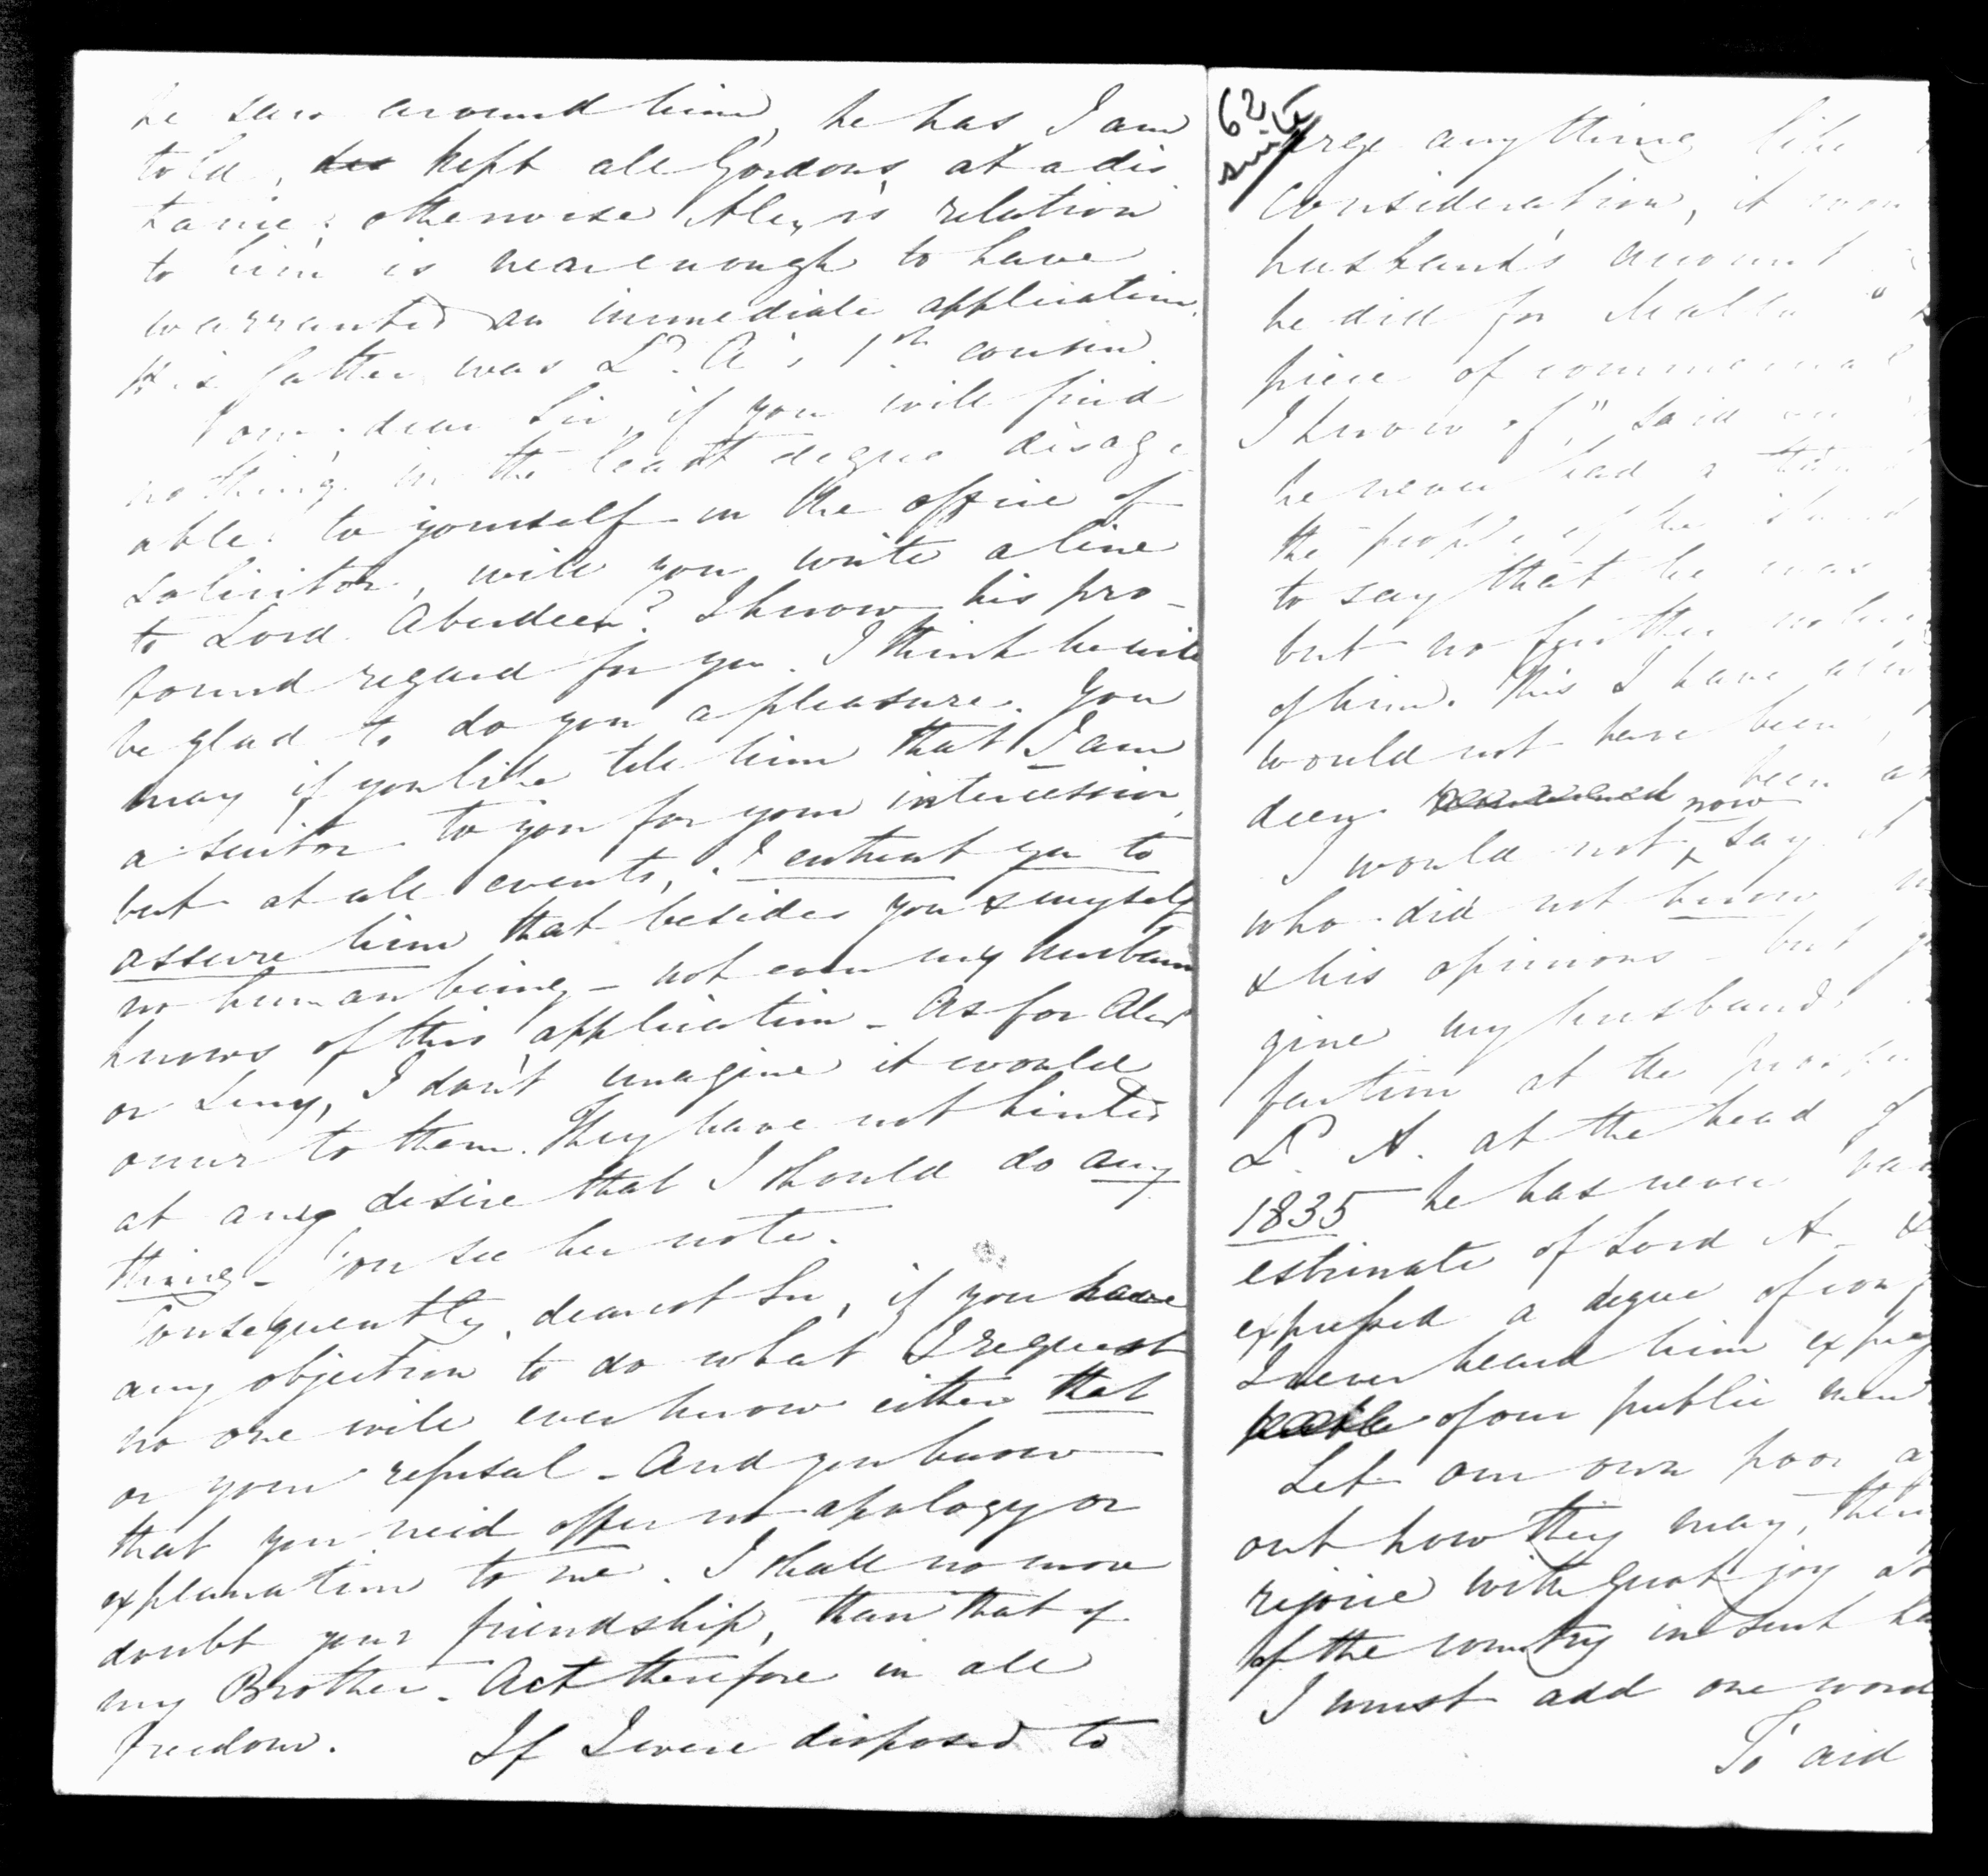 he saw around him, he has I am
told, kept all Gordons at a dis
tance; otherwise Alex's relation
to him is near enough to have
warranted an immediate application.
His father was Ld. A's 1st cousin.
Now, dear Sir, if you will find
nothing in the least degree disagre
able to yourself in the office of
solicitor, will you write a line
to Lord Aberdeen? I know his pro-
found regard for you. I think he will
be glad to do you a pleasure. You
may if you like tell him that I am
a suitor to you for your intercession,
but at all events, I entreat you to
assure him that besides you & myself
no human being - not even my husband
knows of this application - As for Alex
or Lucy, I don't imagine it would
occur to them. They have not hinted
at any desire that I should do any
thing - You see her note.
Consequently, dearest Sir, if you have
any objection to do what I request
no one will ever know either that
or your refusal - And you know
that you need offer no apology or
explanation to me. I shall no more
doubt your friendship, than that of
my Brother - Act therefore in all
freedom. If I were disposed to
62
suite
urge anything like
consideration, it
husband's account
he did for Malta "
piece of
I know of," said
he never had a
the people of the island
to say that he was
but no further
of him. This I have
would not have been
deen been
now
I would not say
who did not know
& his opinions - but
gine my husband's
faction at the
Ld. A. at the head of
1835 he has never
estimate of Lord A - &
expressed a degree of
I never heard him express
of our public men
Let our own poor
out how they may,
rejoice with great joy
of the country in such
I must add one word
To aid